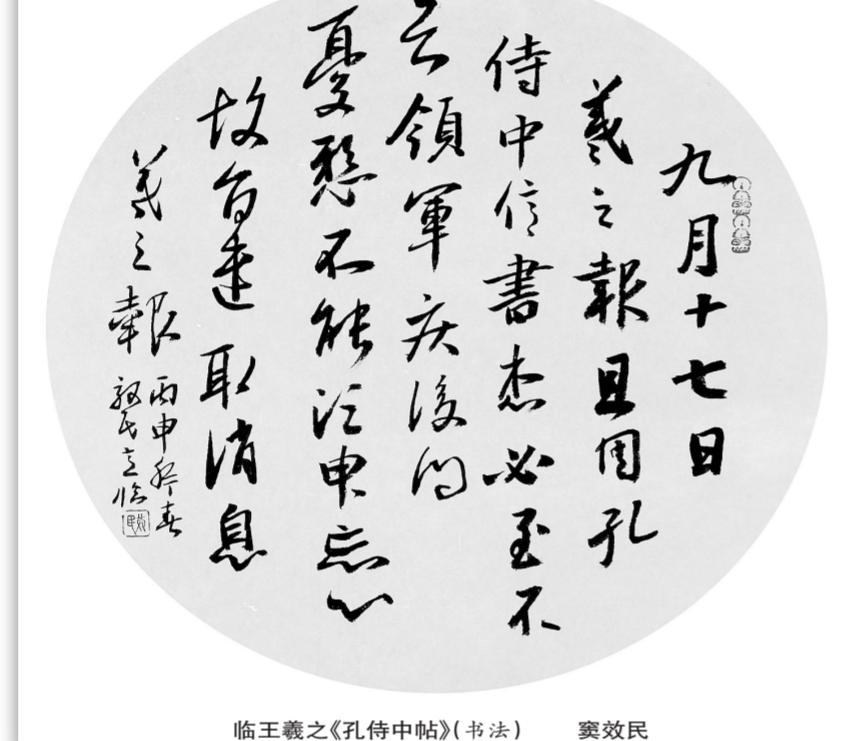 九月十七日
羲之報且因孔
侍中信書想必至不
領軍疾後問
憂懸不能須臾忘心
故旨遣取消息
羲之報
丙申春
临
临王羲之《孔侍中帖》(书法) 窦效民